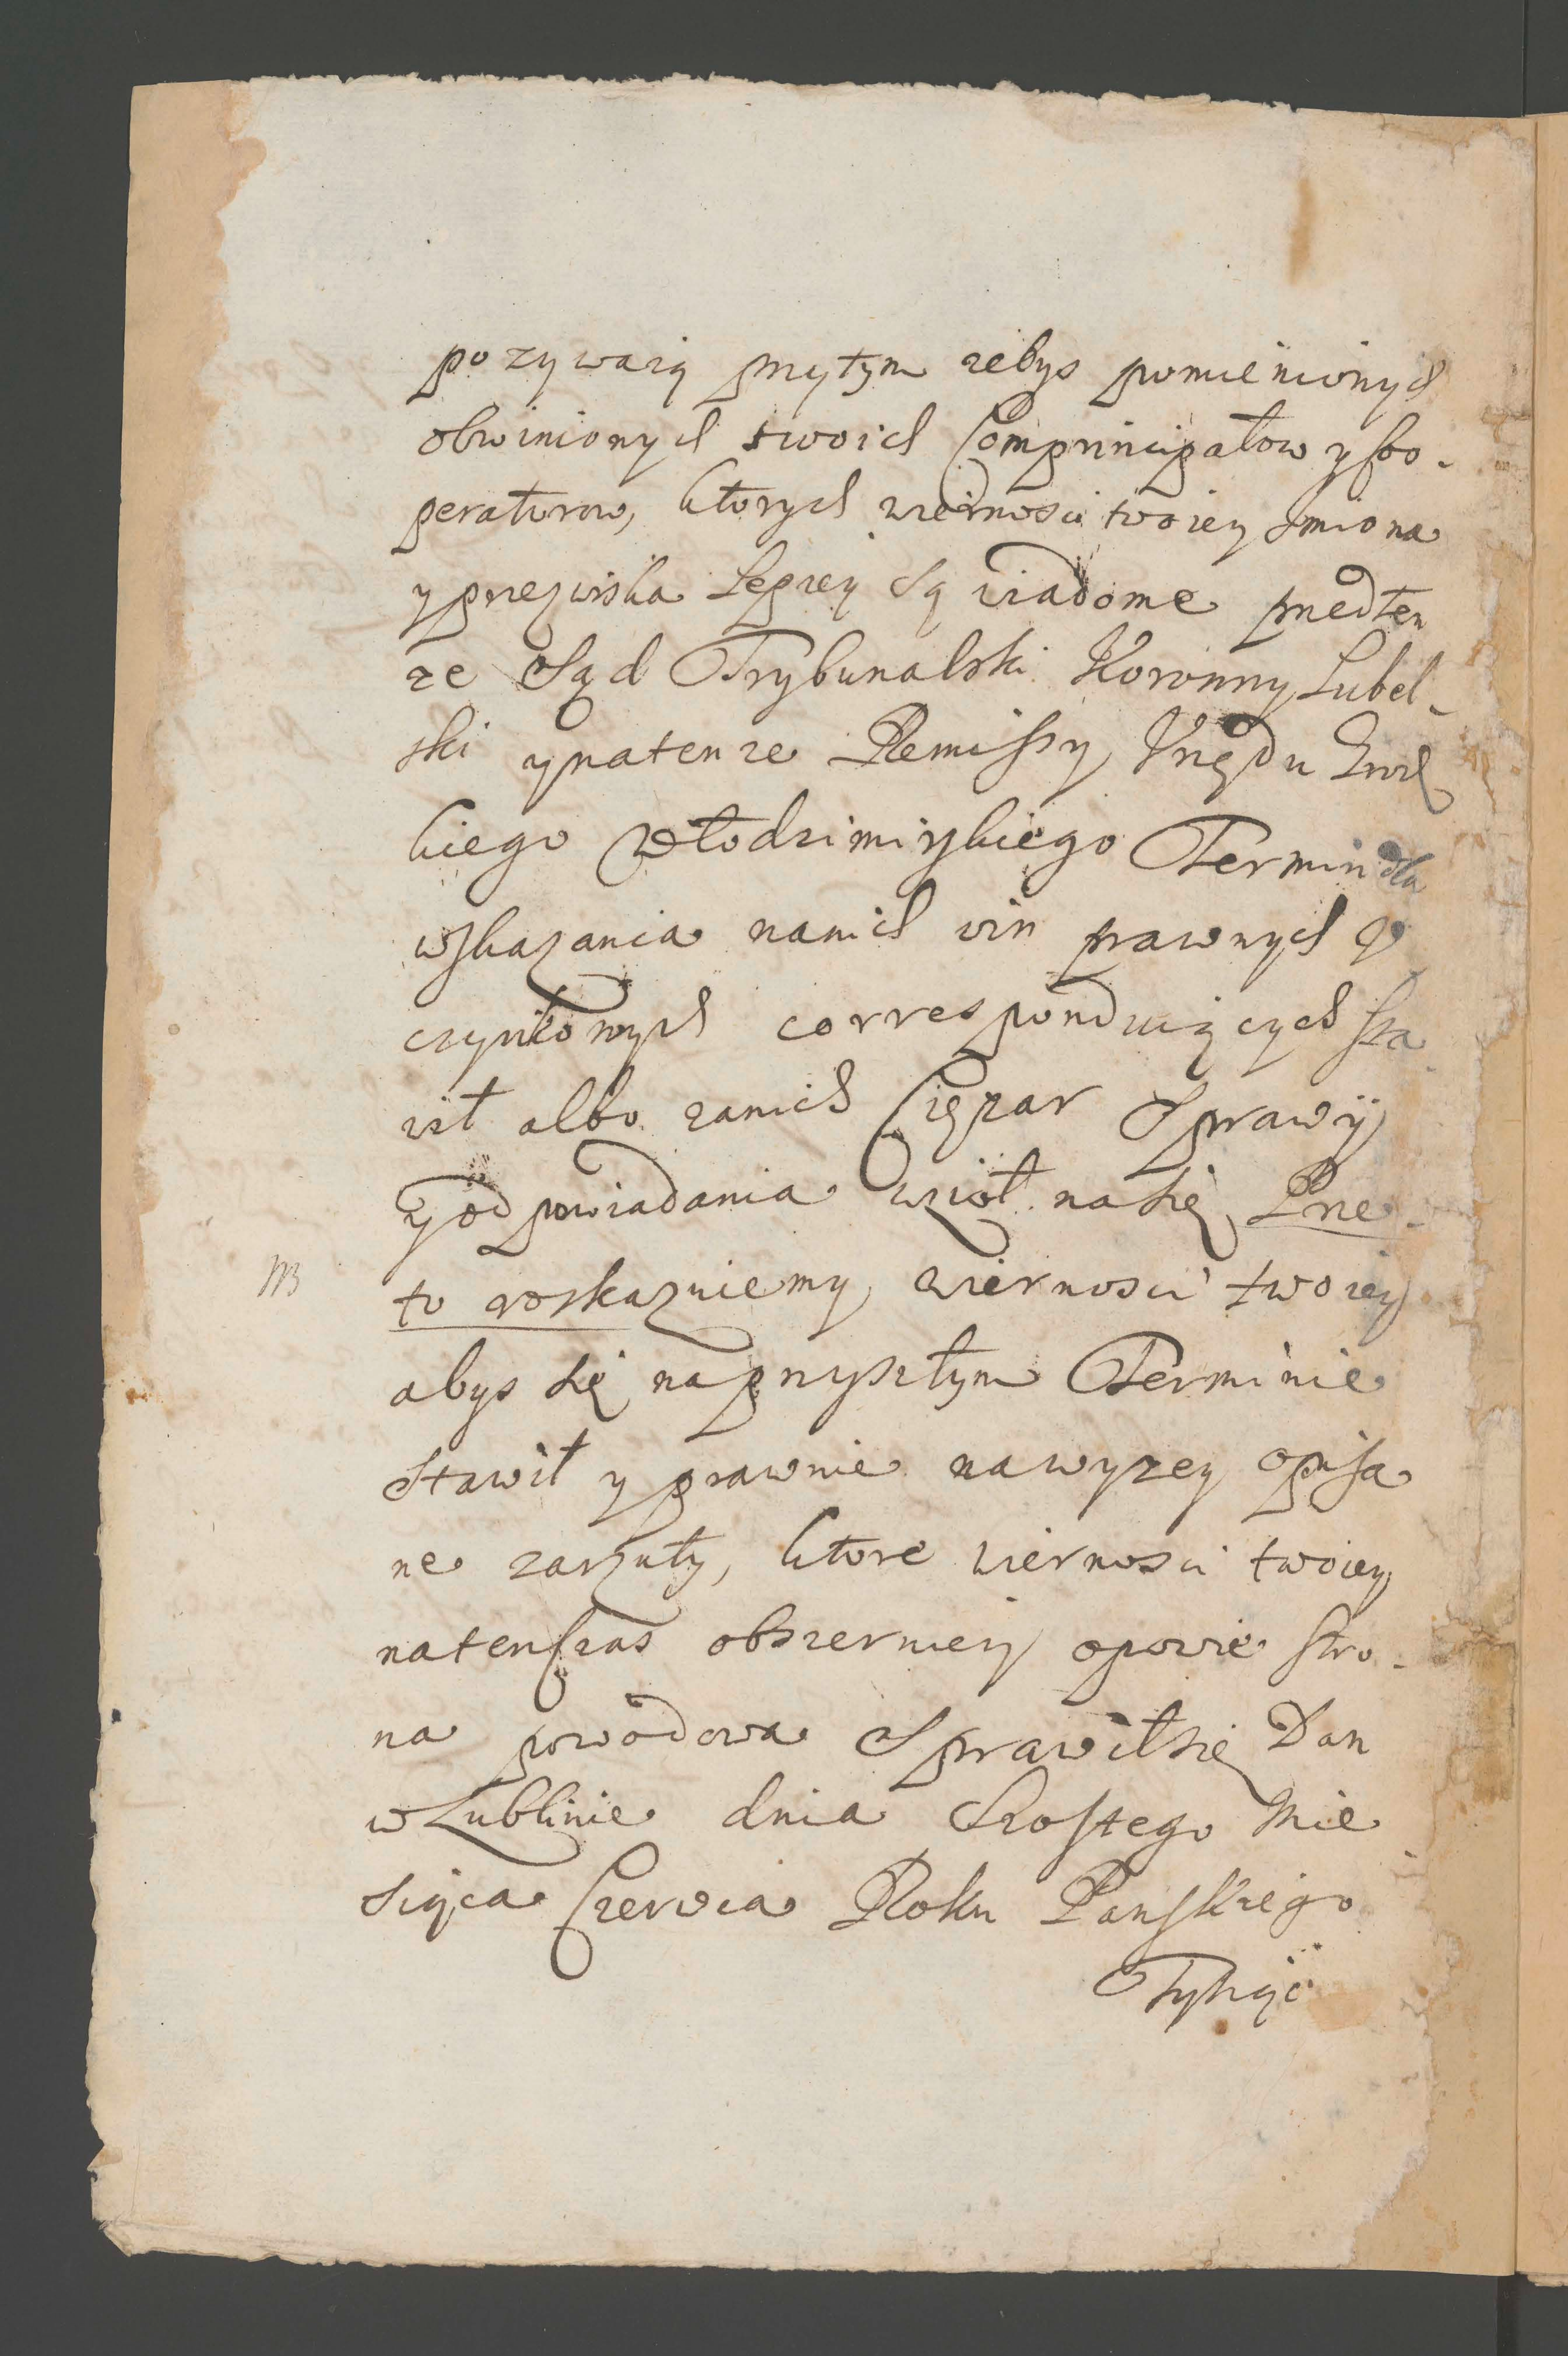 pozywaią przytym zebys pomienionych
obwinionych swoich Comprincipałow y Coo-
peratorow, ktorych wiernosci twoiey Imiona
y przezwiska Lepiey są wiadome przed ten
ze Sąd Trybunalski Koronny Lubel-
ski y na tenze Remissy Vrzędu Grodz
kiego Włodzimirskiego Termin dla
wskazania na nich win prawnych V
czynkow ych corresponduiących sta-
wił albo za nich Ciężar Sprawy
y odpowiadania wziął na się, Prze-
NB to roskazuiemy wiernosci twoiey
abys się na przyszłym Terminie
Stawił y prawnie na wyzey opisa
ne zarzuty, ktore wiernosci twoiey
natenczas obszerniey opowie stro-
na powodowa Sprawił się Dan
w Lublinie dnia Szostego Mie
siąca Czerwca Roku Panskiego
Tysiąc